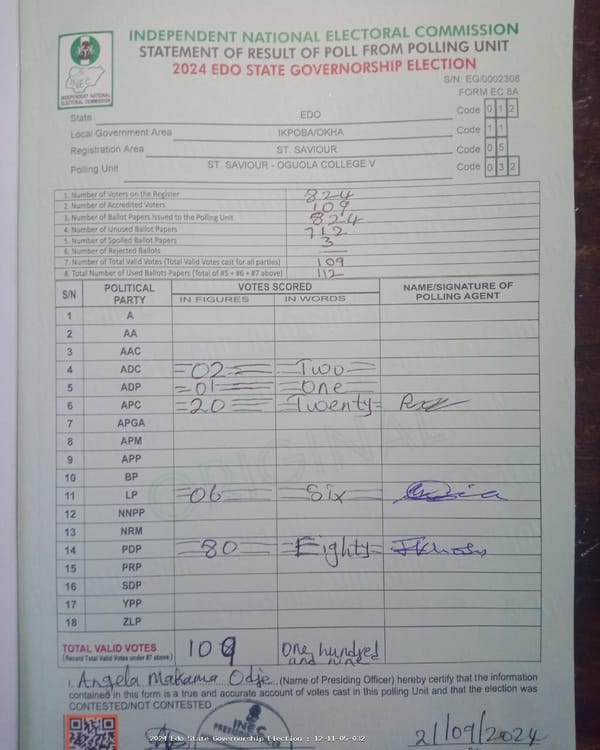 INDEPENDENT NATIONAL ELECTORAL COMMISSION
STATEMENT OF RESULT OF POLL FROM POLLING UNIT
2024 EDO STATE GOVERNORSHIP ELECTION
S/N: EG/0002306
FORM EC 8A
INEC
INDEPENDENT NATIONAL ELECTORAL COMMISSION
State EDO Code 0 1 2
Local Government Area IKPOBA/OKHA Code 1 1
Registration Area ST. SAVIOUR Code 0 5
Polling Unit ST. SAVIOUR - OGUOLA COLLEGE V Code 0 3 2
1. Number of Voters on the Register 824
2. Number of Accredited Voters 109
3. Number of Ballot Papers Issued to the Polling Unit 824
4. Number of Unused Ballot Papers 712
5. Number of Spoiled Ballot Papers 3
6. Number of Rejected Ballots —
7. Number of Total Valid Votes (Total Valid Votes cast for all parties) 109
8. Total Number of Used Ballots Papers (Total of #5 + #6 + #7 above) 112
S/N POLITICAL PARTY VOTES SCORED NAME/SIGNATURE OF POLLING AGENT
IN FIGURES IN WORDS
1 A
2 AA
3 AAC
4 ADC =02= =Two=
5 ADP =01= =one=
6 APC =20= =Twenty=
7 APGA
8 APM
9 APP
10 BP
11 LP =06= =Six=
12 NNPP
13 NRM
14 PDP =80= =Eighty=
15 PRP
16 SDP
17 YPP
18 ZLP
TOTAL VALID VOTES 109 One hundred and nine
(Record Total Valid Votes under #7 above)
I, Angela Makama Odje (Name of Presiding Officer) hereby certify that the information
contained in this form is a true and accurate account of votes cast in this polling Unit and that the election was
CONTESTED/NOT CONTESTED
INEC
21/09/2024
2024 Edo State Governorship Election : 12-11-05-032